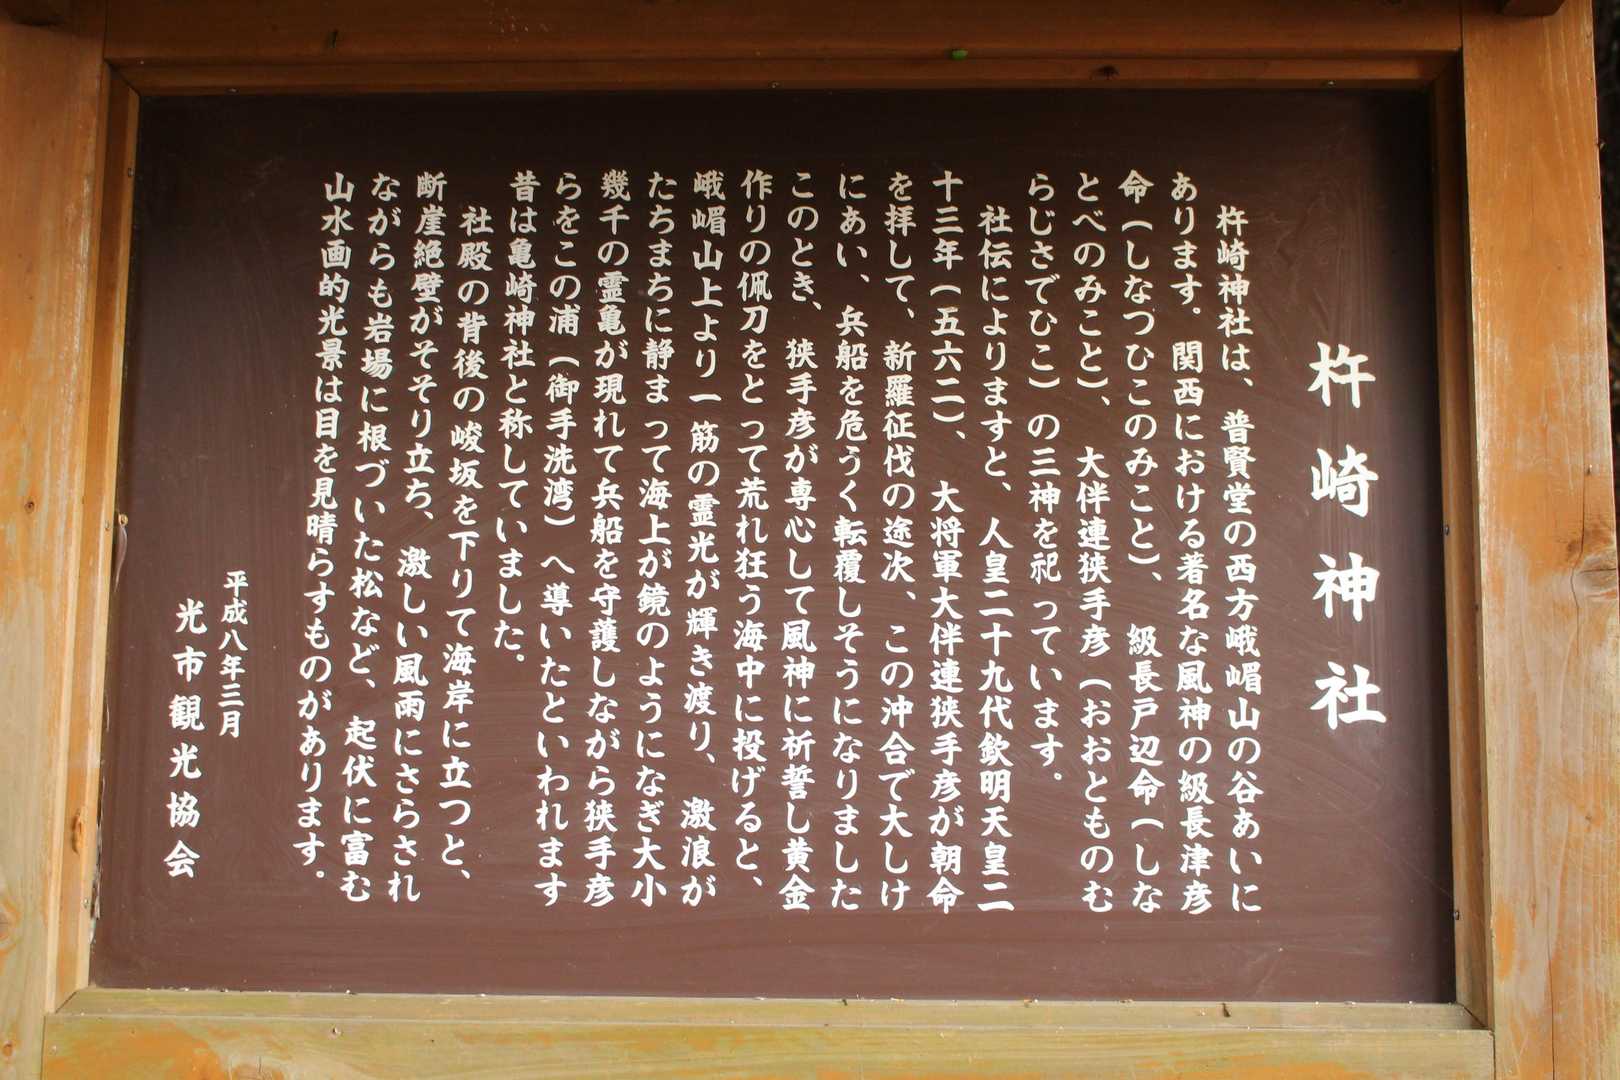 杵崎神社
杵崎神社は、普賢堂の西方峨嵋山の谷あいに
あります。関西における著名な風神の級長津彦
命(しなつひこのみこと)、級長戸辺命(しな
とべのみこと)、大伴連狭手彦(おおとものむ
らじさでひこ)の三神を祀っています。
社伝によりますと、人皇二十九代欽明天皇二
十三年(五六二)、大将軍大伴連狭手彦が朝命
を拝して、新羅征伐の途次、この沖合で大しけ
にあい、兵船を危うく転覆しそうになりました
このとき、狭手彦が専心して風神に祈誓し黄金
作りの佩刀をとって荒れ狂う海中に投げると、
峨嵋山上より一筋の霊光が輝き渡り、激浪が
たちまちに静まって海上が鏡のようになぎ大小
幾千の霊亀が現れて兵船を守護しながら狭手彦
らをこの浦(御手洗湾)へ導いたといわれます
昔は亀崎神社と称していました。
社殿の背後の峻坂を下りて海岸に立つと、
断崖絶壁がそそり立ち、激しい風雨にさらされ
ながらも岩場に根づいた松など、起伏に富む
山水画的光景は目を見晴らすものがあります。
平成八年三月
光市観光協会